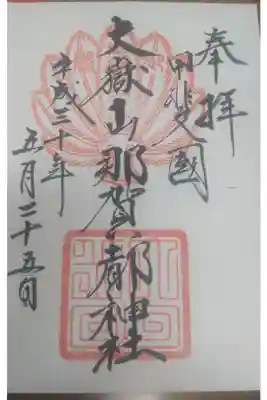 奉拝
甲斐之國
大嶽山那賀都神社
平成三十年
五月二十五日